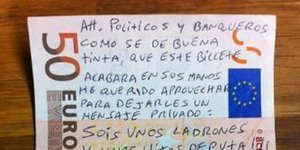 50 EURO
Att. POLITICOS Y BANQUEROS
COMO SE DE BUENA
TINTA, QUE ESTE BILLETE
ACABARA EN SUS MANOS
HE QUERIDO APROVECHAR
PARA DEJARLES UN
MENSAJE PRIVADO
SOIS UNOS LADRONES
Y UNOS HIJOS DE PUTA